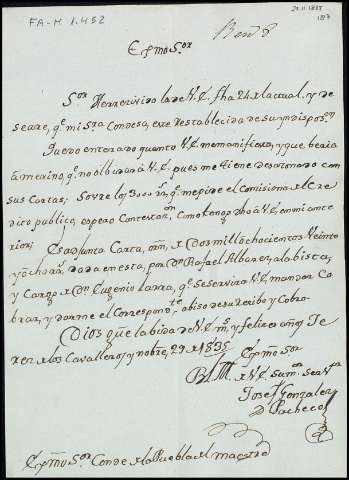 FA-M 1.452
29.11.1835
Exmo Sor
Sor he recivido la de V.E. fha 24 del actual, y de
seare, qe mi Sra Condesa, este restablecida de su yndisposn
Quedo enterado quanto V.E. me manifiesta, y que
a merino, qe no olbidara a V.E. pues me tiene desazonado con
sus Cartas; Sovre los 3000 rs qe me pide el Comisiona del Cre
dito publico, espero Contestaon como tengo dho a V.E. en mi ante
rior;
Es adjunta Carta, orn, de dos mil ochocientos Veinte
y ocho rs dada en esta, por Dn Rafael Albarez, a la bista,
y Cargo de Dn Eugenio Larra, qe se servira V.E. mandar Co
brar, y darme el Correspondte abiso de su recibo y Cobro.
Dios gue la bida de V.E. ms y felices años Je
rez de los Cavalleros y Nobre, 29 de 1835
Exmo Sor
B.L.M. de V.E. su mas. ser
Josef Gonzalez
D Pacheco
Exmo Sor Conde de la Puebla del Maestre